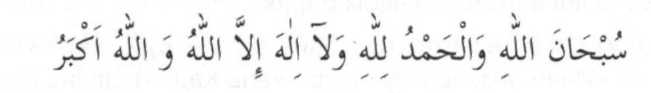 سُبْحَانَ اللّٰهِ وَالْحَمْدُ لِلّٰهِ وَلَآ اِلٰهَ إِلَّا اللّٰهُ وَ اللّٰهُ اَكْبَرُ